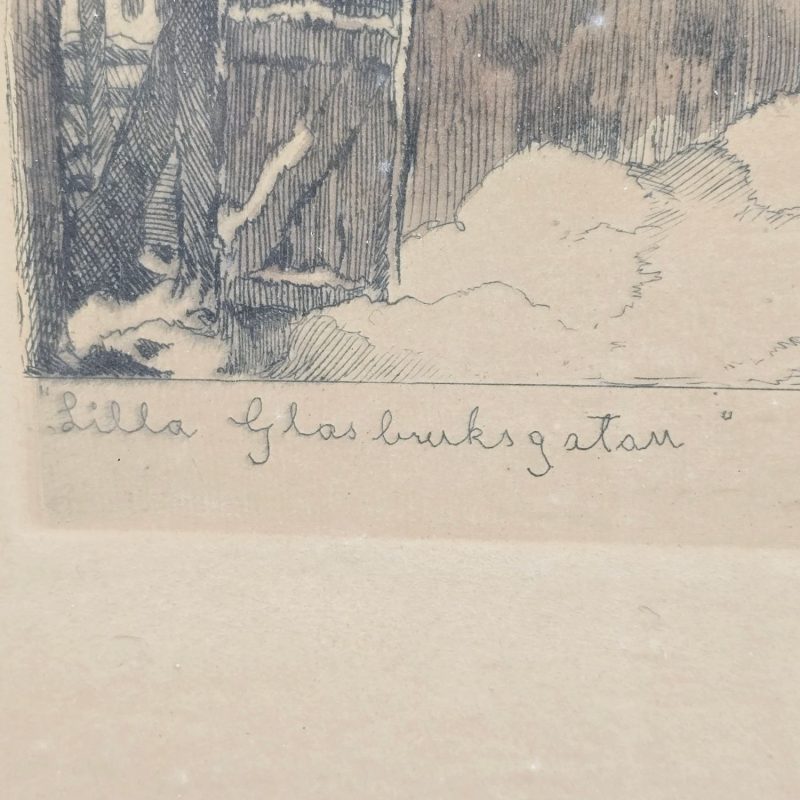 "Lilla Glasbruksgatan"